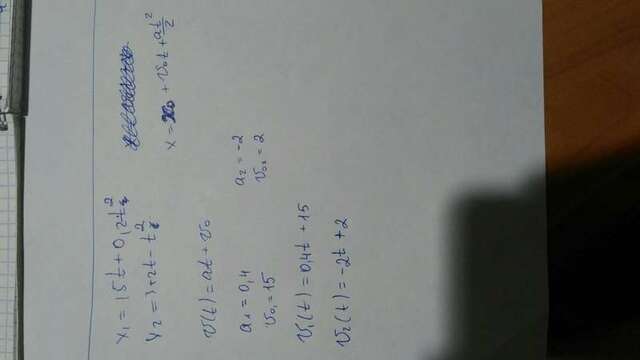 x₁ = 15t + 0,2t²
x₂ = 3 + 2t - t²
x = x₀ + v₀t + at²/2
v(t) = at + v₀
a₁ = 0,4
v₀₁ = 15
a₂ = -2
v₀₂ = 2
v₁(t) = 0,4t + 15
v₂(t) = -2t + 2